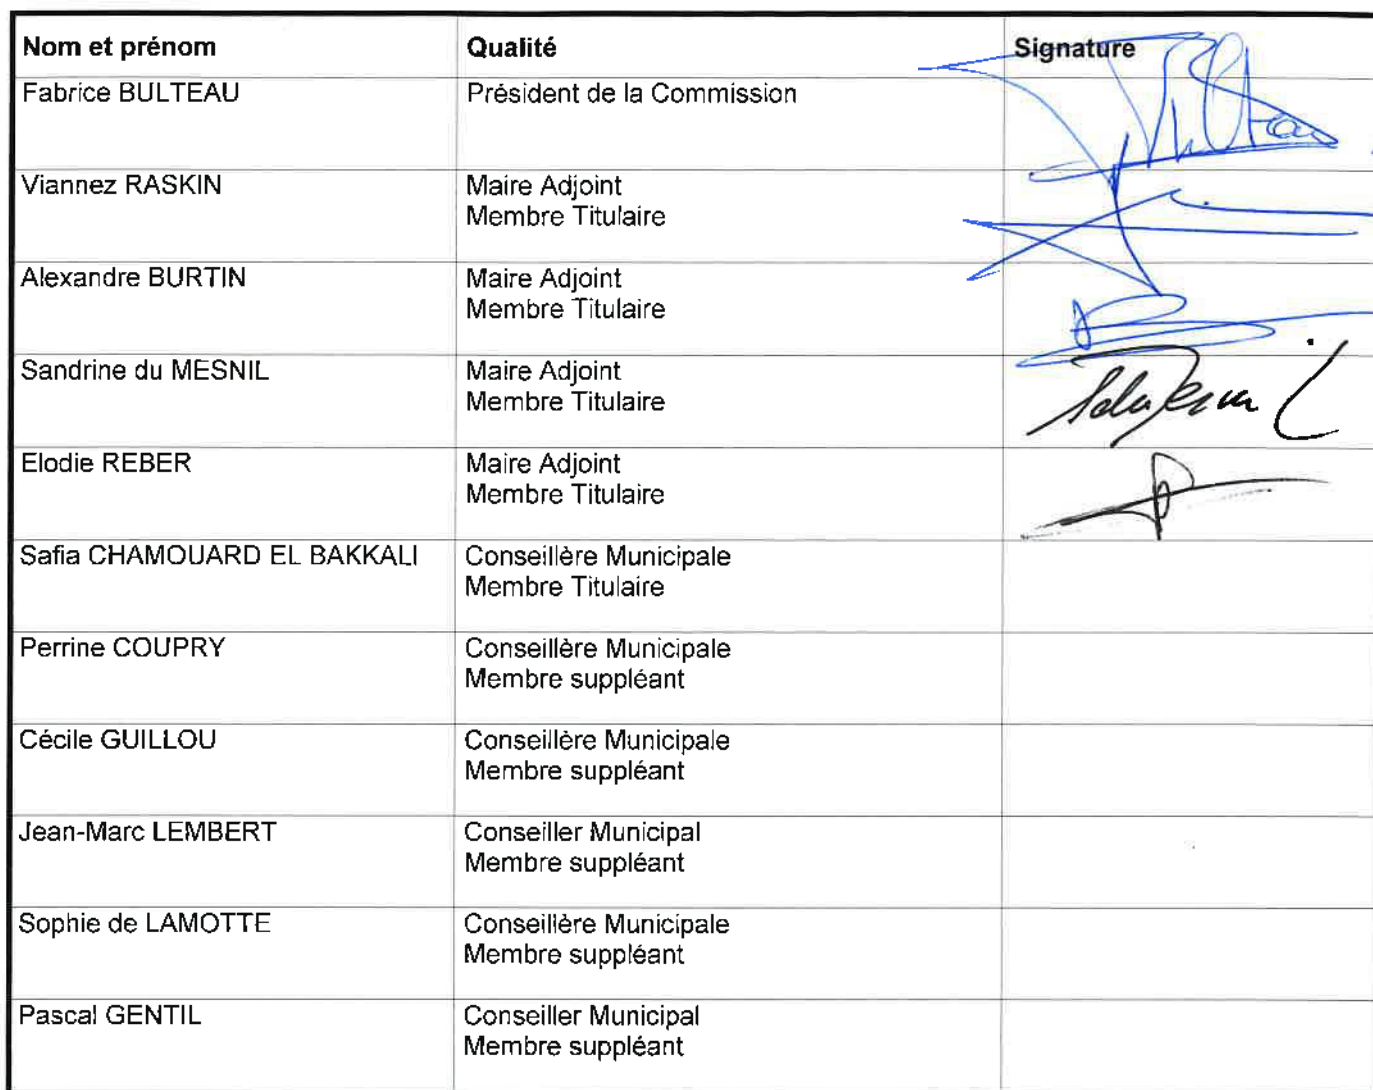 Nom et prénom Qualité Signature
Fabrice BULTEAU Président de la Commission
Viannez RASKIN Maire Adjoint
Membre Titulaire
Alexandre BURTIN Maire Adjoint
Membre Titulaire
Sandrine du MESNIL Maire Adjoint
Membre Titulaire
Elodie REBER Maire Adjoint
Membre Titulaire
Safia CHAMOUARD EL BAKKALI Conseillère Municipale
Membre Titulaire
Perrine COUPRY Conseillère Municipale
Membre suppléant
Cécile GUILLOU Conseillère Municipale
Membre suppléant
Jean-Marc LEMBERT Conseiller Municipal
Membre suppléant
Sophie de LAMOTTE Conseillère Municipale
Membre suppléant
Pascal GENTIL Conseiller Municipal
Membre suppléant